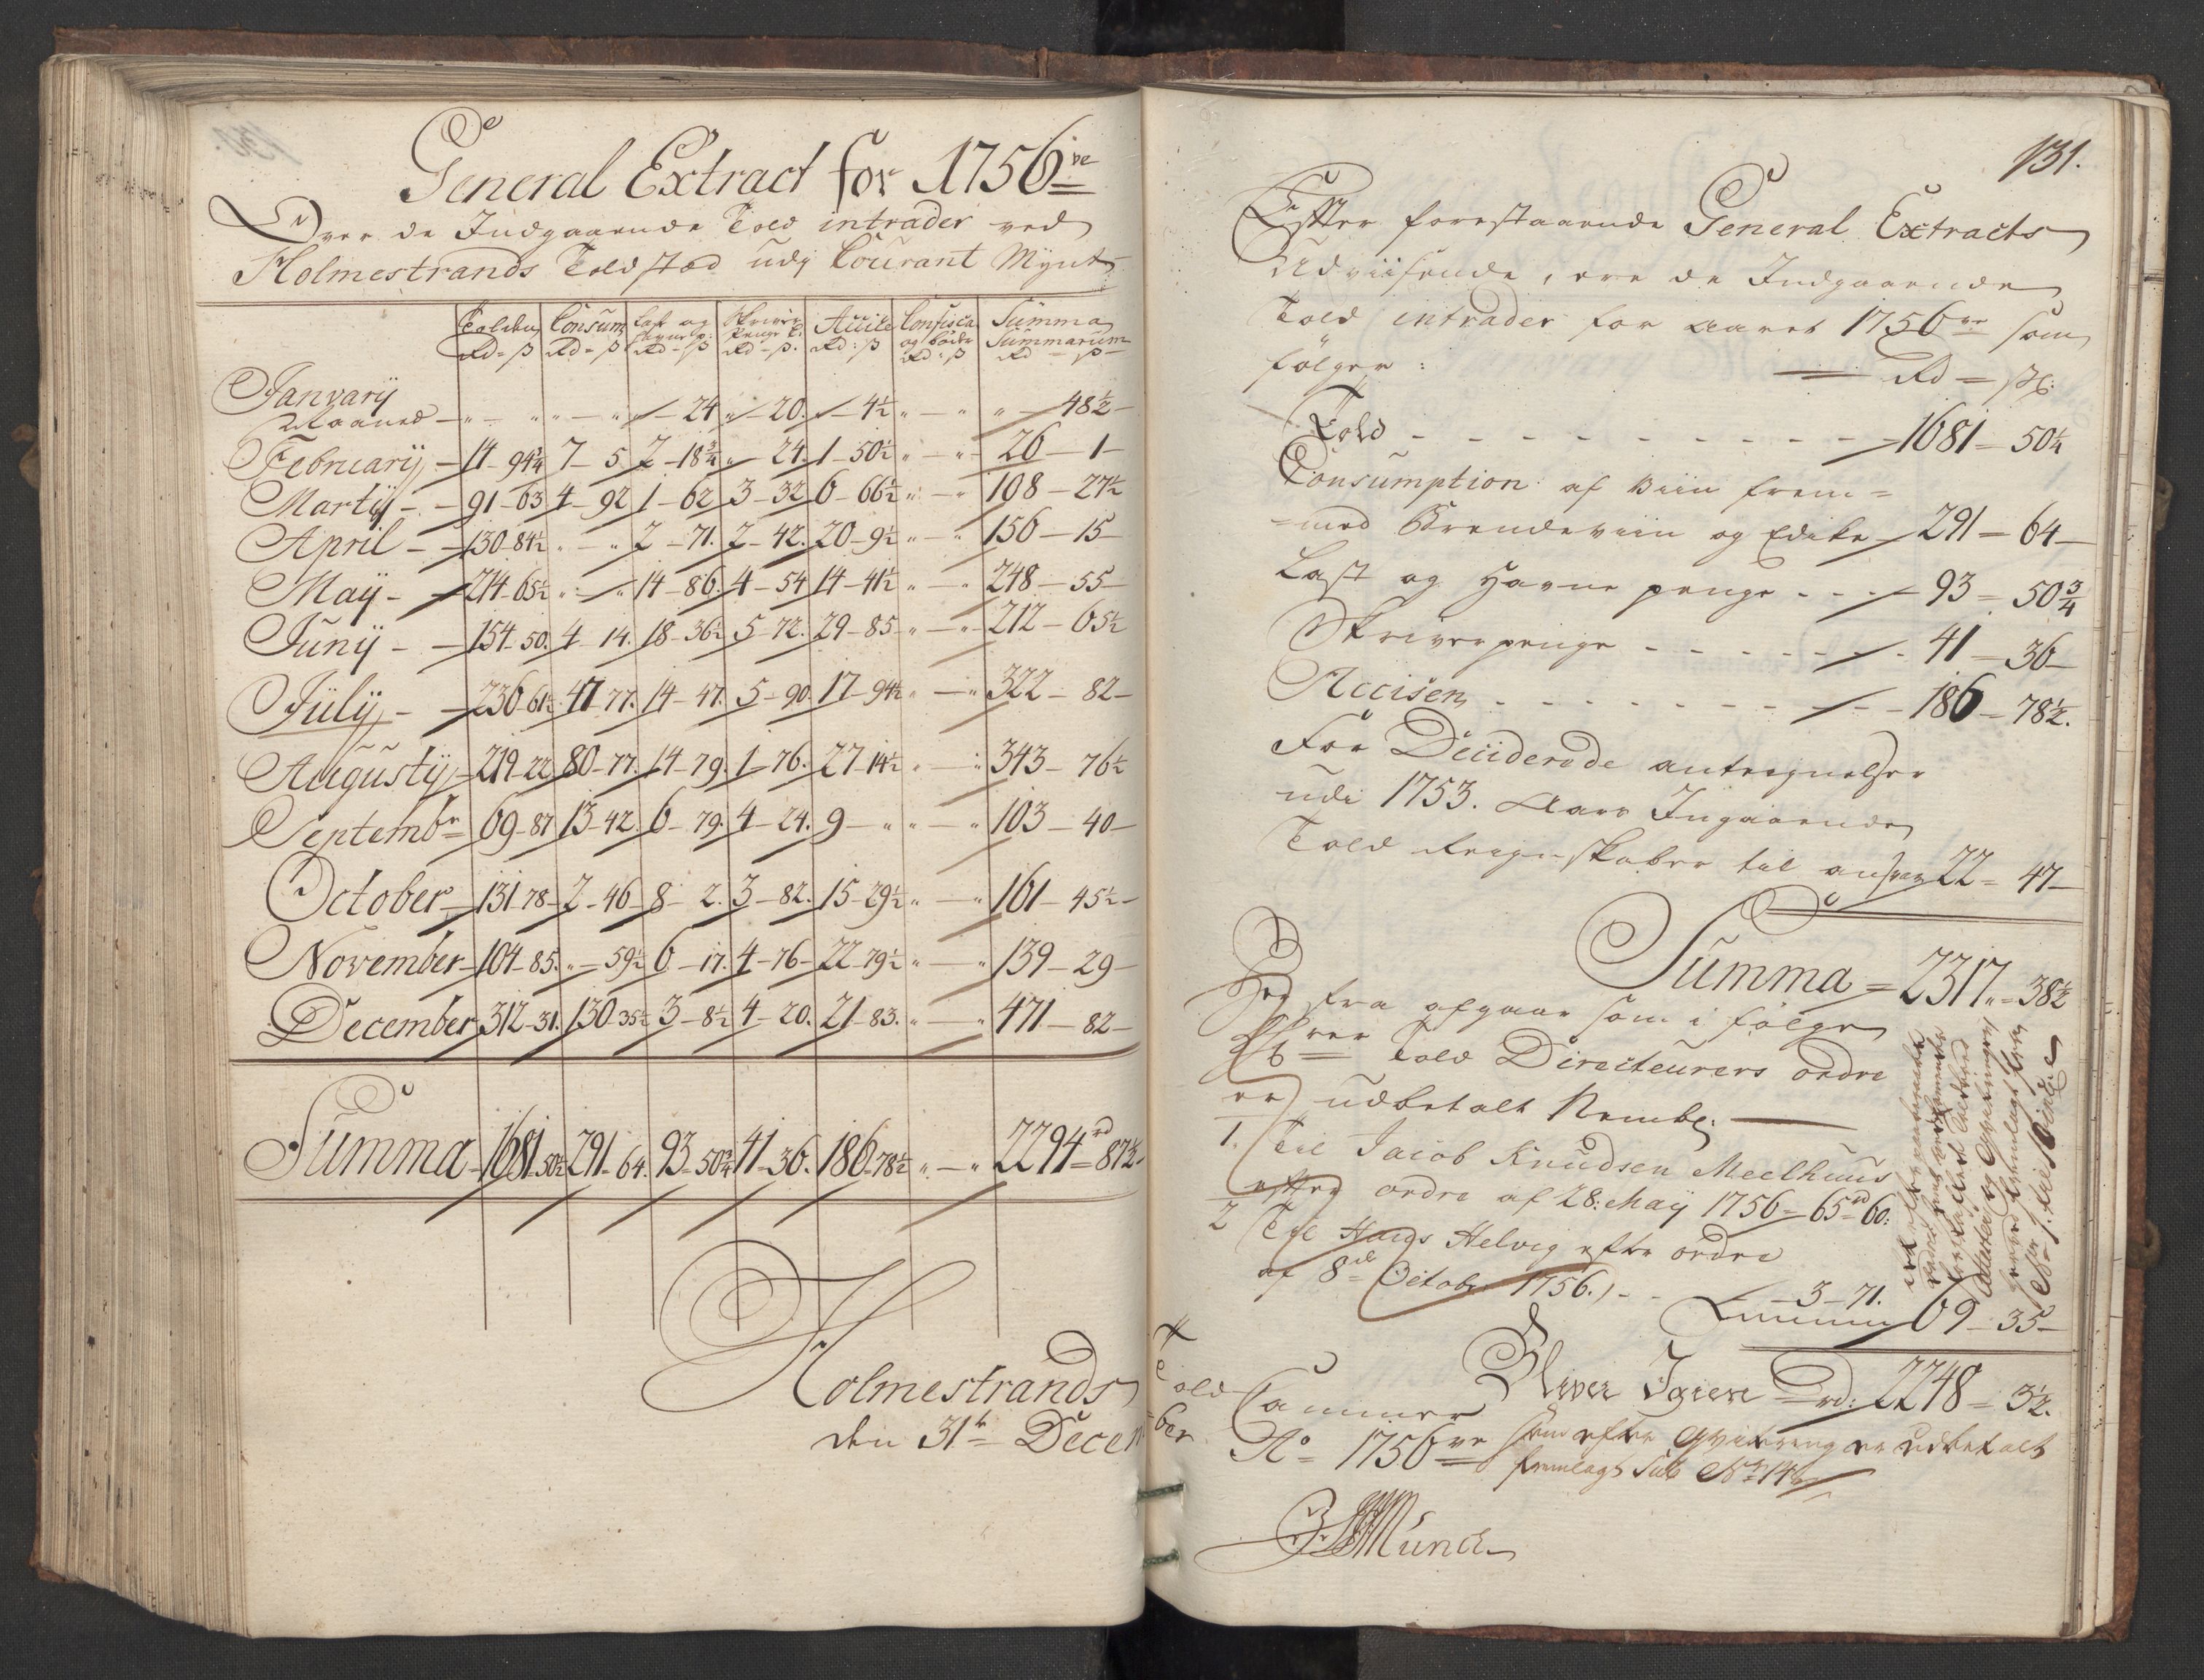 General Extract for 1756ve
Over de Indgaaende Told intrader ved
Holmestrands Toldstæd udj Courant Mynt
Tolden Consum Last og Skriver Accise Confisca Summa
Havnep: Penge og bøder Summarum
Rd = ß Rd = ß Rd - ß Rd - ß. Rd : ß Rd : ß Rd = ß
Janvarij
Maaned - " - " " - " " - 24 " - 20. " - 4½ " - " " - 48½ -
Februarij - 14 - 94¾ 7 - 5 2 - 18¾ " - 24. 1 - 50½ " - " 26 - 1 -
Martij - - 91 - 63 4 - 92 1 - 62 3 - 32 6 - 66½ " - " 108 - 27½
April - - 130 - 84½ " - " 2 - 71. 2 - 42. 20 - 9½ " - " 156 - 15 -
Maij - 214 - 65½ " - " 14 - 86. 4 - 54 14 - 41½ " - " 248 - 55 -
Junij - - 154 - 50. 4 - 14. 18 - 36½ 5 - 72. 29 - 85 - " - " 212 - 65½
Julij - - 236 - 61½ 47 77. 14 - 47. 5 - 90. 17 - 94½ " - " 322 - 82 -
Augustij - 219 - 22 80 - 77. 14 - 79. 1 - 76. 27 - 14½ " - " 343 - 76½
Septembr - 69 - 87 13 - 42. 6 - 79. 4 - 24. 9 - " " - " 103 - 40 -
October - 131 - 78 - 2 - 46 - 8 - 2. 3 - 82. 15 - 29½ " - " 161 - 45½ -
November - 104 - 85. " - 59½ 6 - 17. 4 - 76 - 22 - 79½ " - " 139 - 29 -
December 312 - 31. 130 - 35½ 3 - 8½ 4 - 20. 21 - 83. " - " 471 - 82 -
Summa - 1681 - 50¼ 291 - 64. 93 - 50¾ 41 - 36. 186 - 78½ " - " 2294rd = 87½.
Holmestrands Told Cammer
den 31te December Ao 1756ve
131.
Efter forestaaende General Extracts
Udviisende, ere de Indgaaende
Told intrader for Aaret 1756ve som
følger: Rd = ß.
Told - - - - - - - - - - 1681 - 50¼
Consumption af Viin frem=
=med Brendeviin og Edike - 291 - 64 -
Last og Havne penge - - - 93 - 50¾
Skriverpenge - - - - - - 41 - 36 -
Accisen - - - - - - - - 186 - 78½.
For Deciderede antegnelser
udi 1753. Aars Ingaaende
Told Regnskaber til ansvar 22 = 47 -
Summa = 2317 " = 38½
Her fra afgaar som i følge
Told Directeurers ordre
er udbetalt Nembl:
1. Til Jacob Knudsen Meelhuus
efter ordre af 28: Maij 1756 - 65rd 60:
2 Til Hans Helvig efter ordre
af 8de Octobr 1756. - - - 3 - 71.
69 - 35 -
Bliver Igien Rd: 2248 = 3½.
som efter Qvitering er udbetalt
fremlagt Sub No 14
Münch